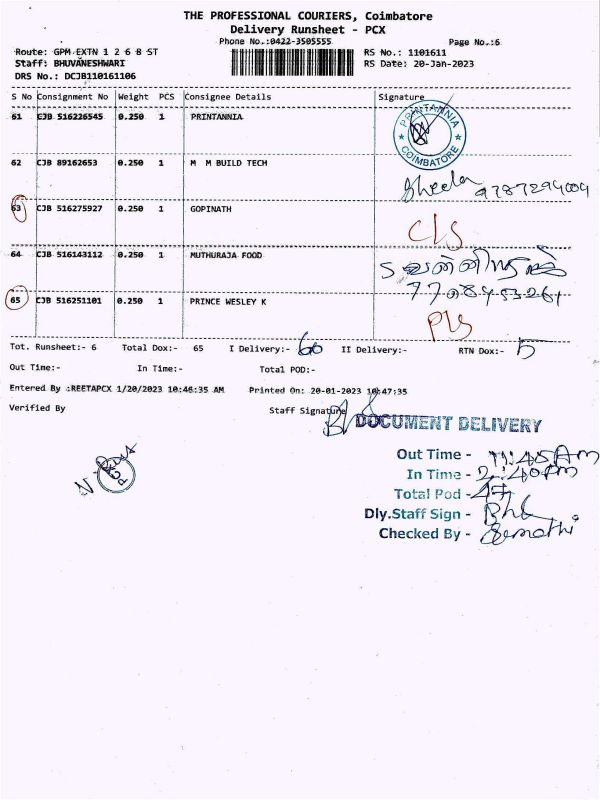 THE PROFESSIONAL COURIERS, Coimbatore
Delivery Runsheet - PCX
Phone No.:0422-3505555 Page No.:6
Route: GPM EXTN 1 2 6 8 ST RS No.: 1101611
Staff: BHUVANESHWARI RS Date: 20-Jan-2023
DRS No.: DCJB110161106
S No Consignment No Weight PCS Consignee Details Signature
61 CJB 516226545 0.250 1 PRINTANNIA
PRINTANNIA
COIMBATORE
62 CJB 89162653 0.250 1 M M BUILD TECH
Sheela 9787294004
63 CJB 516275927 0.250 1 GOPINATH
C/S
64 CJB 516143112 0.250 1 MUTHURAJA FOOD
65 CJB 516251101 0.250 1 PRINCE WESLEY K
Tot. Runsheet:- 6 Total Dox:- 65 I Delivery:- 60 II Delivery:- RTN Dox:- 5
Out Time:- In Time:- Total POD:-
Entered By :REETAPCX 1/20/2023 10:46:35 AM Printed On: 20-01-2023 10:47:35
Verified By Staff Signature
DOCUMENT DELIVERY
Out Time - 11:45 Am
In Time - 2:40 pm
Total Pod - 47
Dly.Staff Sign -
Checked By -
PCX